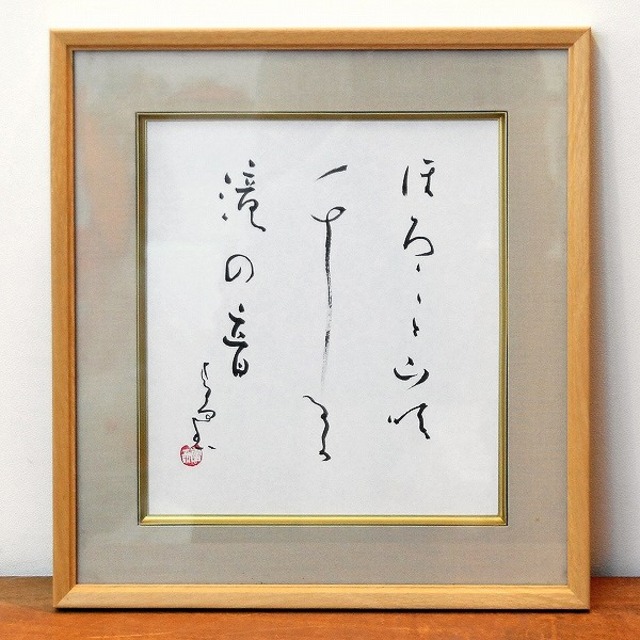 ほろゝゝと山吹
ちるか
滝の音